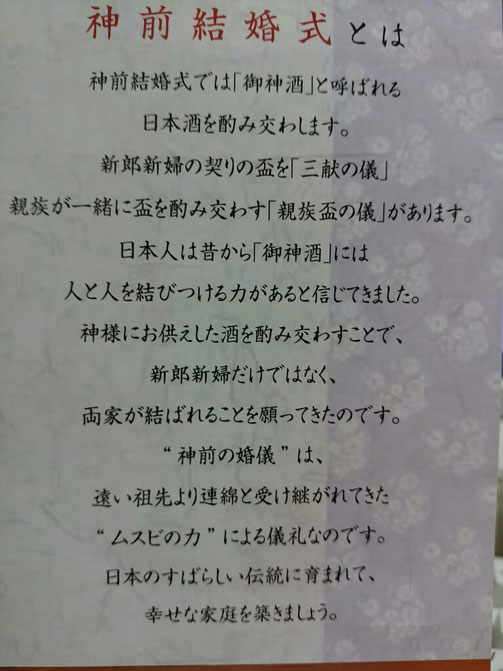 神前結婚式とは
神前結婚式では「御神酒」と呼ばれる
日本酒を酌み交わします。
新郎新婦の契りの盃を「三献の儀」
親族が一緒に盃を酌み交わす「親族盃の儀」があります。
日本人は昔から「御神酒」には
人と人を結びつける力があると信じてきました。
神様にお供えした酒を酌み交わすことで、
新郎新婦だけではなく、
両家が結ばれることを願ってきたのです。
“神前の婚儀”は、
遠い祖先より連綿と受け継がれてきた
“ムスビの力”による儀礼なのです。
日本のすばらしい伝統に育まれて、
幸せな家庭を築きましょう。